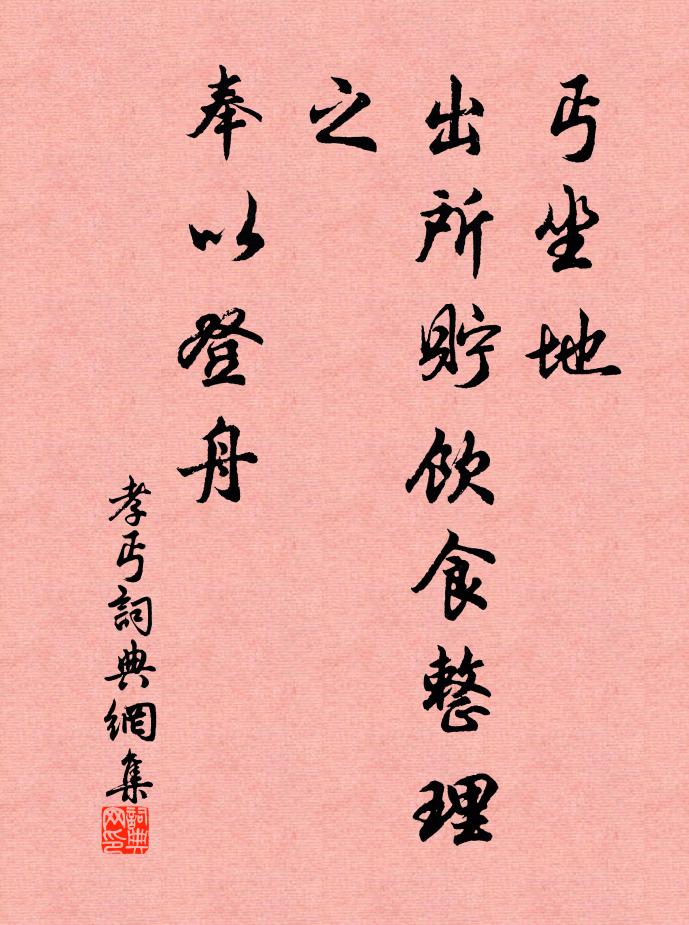 丐坐地
出所貯飲食整理
之
奉以登舟
孝丐詞典網集
詞典
网印